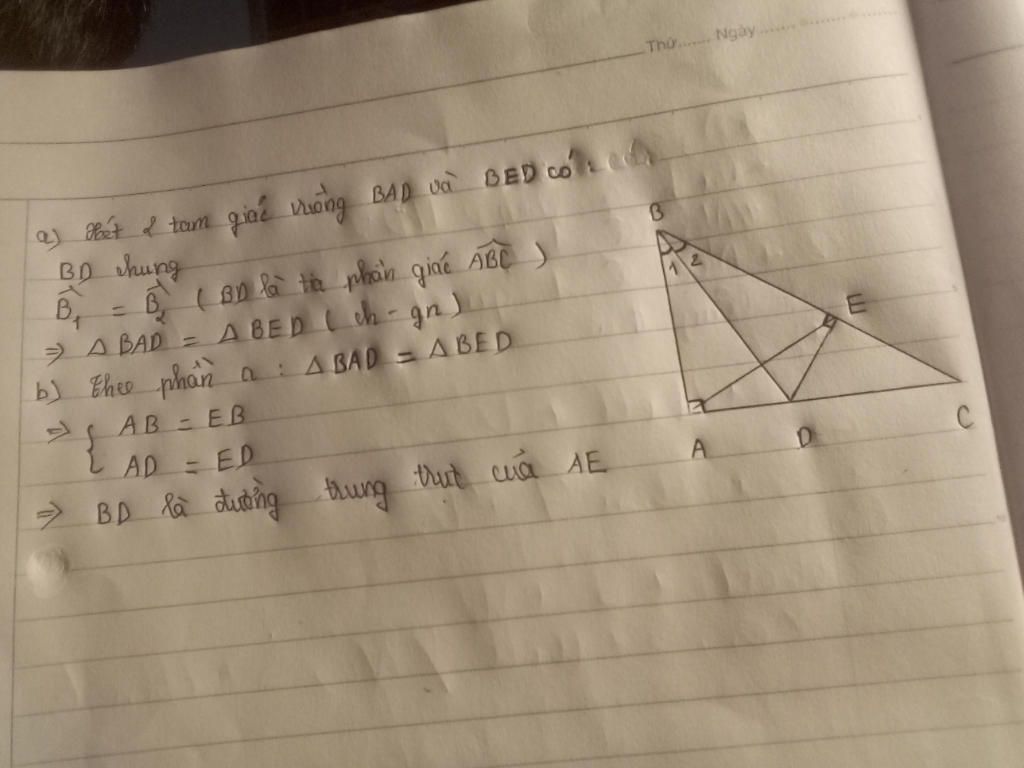 Thứ....... Ngày...............
a) Xét 2 tam giác vuông BAD và BED có:
BD chung
B̂₁ = B̂₂ ( BD là tia phân giác ABC )
⇒ Δ BAD = Δ BED ( ch - gn )
b) theo phần a : Δ BAD = Δ BED
⇒ { AB = EB
AD = ED
⇒ BD là đường trung trực của AE
B
1 2
E
A
D
C